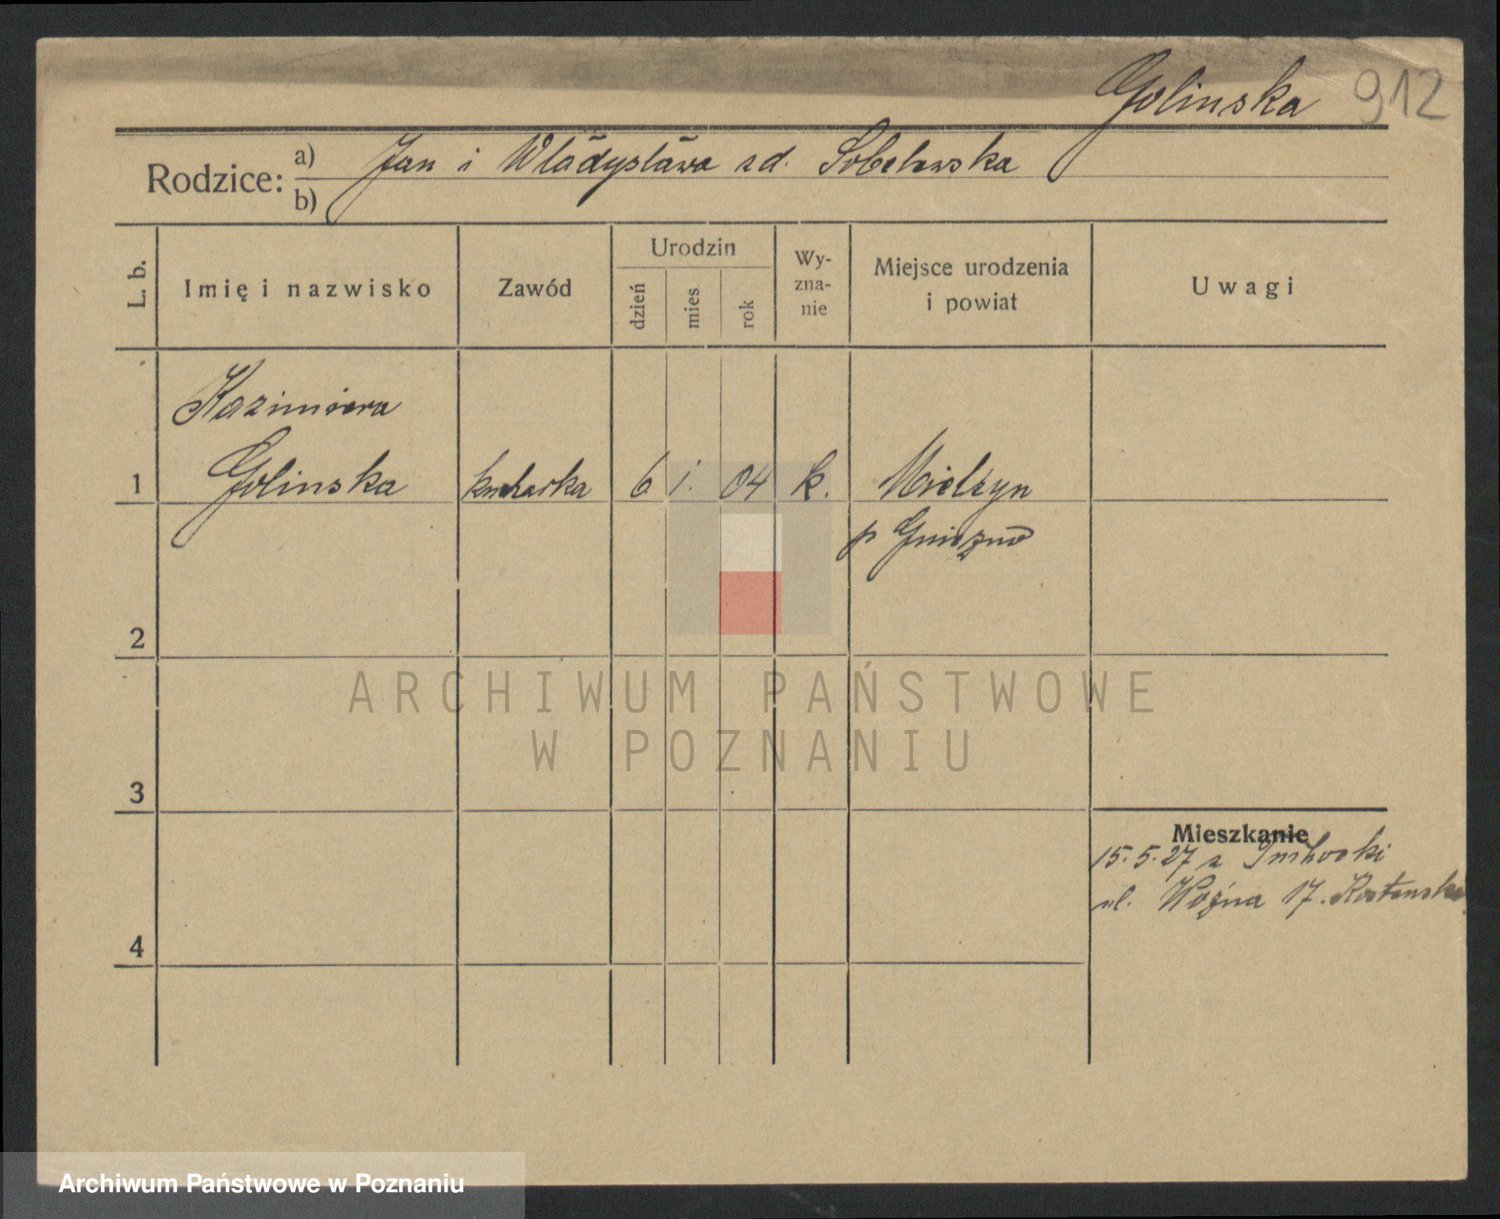 Golinska 912
Rodzice: a) Jan i Władysława zd. Sobelewska
b)
L. b. Imię i nazwisko Zawód Urodzin dzień mies rok Wy-zna-nie Miejsce urodzenia i powiat Uwagi
Kazimiera
1 Golinska kucharka 6 i. 04 k. Mielżyn
p Gniezno
2
ARCHIWUM PAŃSTWOWE
W POZNANIU
3
Mieszkanie
15.5.27 z
4 ul. Woźna 17.
Archiwum Państwowe w Poznaniu